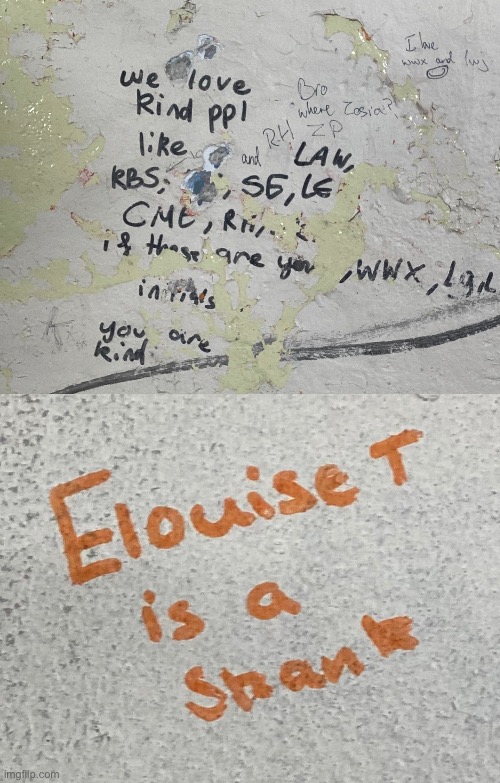 we love
kind ppl
like and LAW,
KBS, , SE, LE
CME, RH,
if these are you ,WWX,
initials
you are
kind.
Bro
where Zosia?
RH ZP
I love
wwx and lwj
Elouise T
is a
Skank
imgflip.com